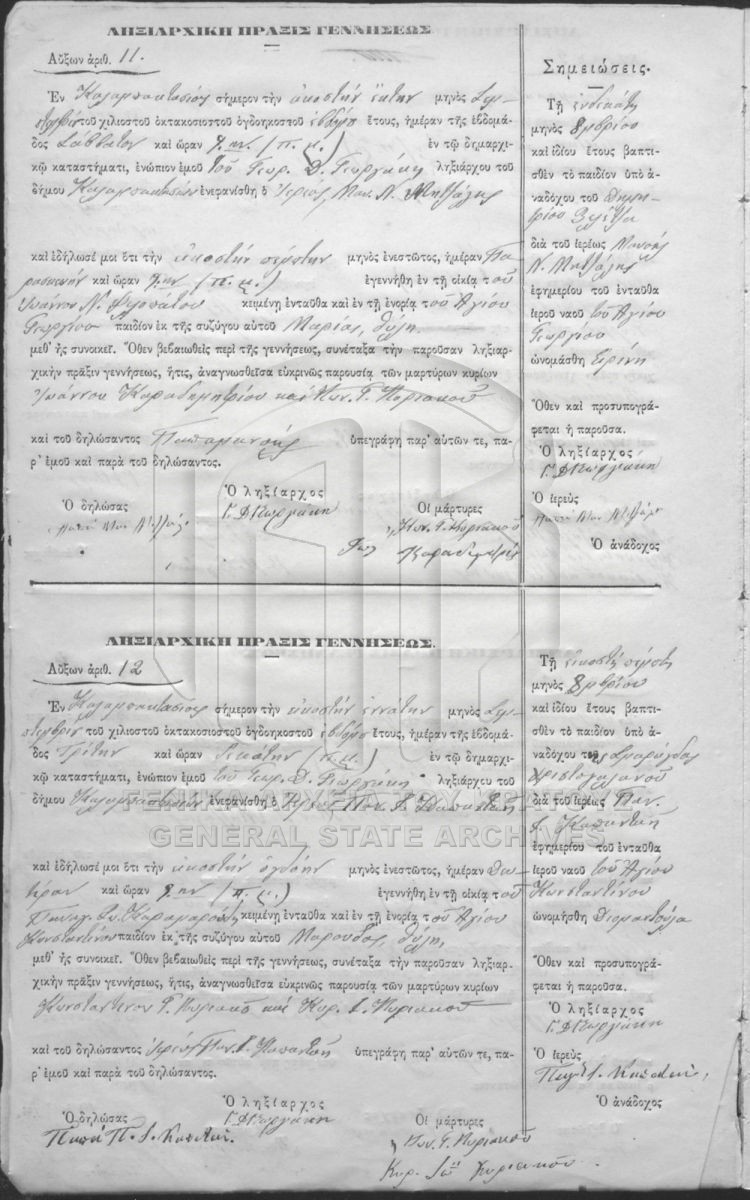 ΛΗΞΙΑΡΧΙΚΗ ΠΡΑΞΙΣ ΓΕΝΝΗΣΕΩΣ
Αὔξων ἀριθ. 11.
Ἐν σήμερον τὴν εἰκοστὴν ἕκτην μηνὸς Σεπ-
τεμβρίου τοῦ χιλιοστοῦ ὀκτακοσιοστοῦ ὀγδοηκοστοῦ ἑβδόμου ἔτους, ἡμέραν τῆς ἑβδομά-
δος Σάββατον καὶ ὥραν (π. μ.) ἐν τῷ δημαρχι-
κῷ καταστήματι, ἐνώπιον ἐμοῦ τοῦ Γεωρ. Δ. Γεωργάκη ληξιάρχου τοῦ
δήμου ἐνεφανίσθη ὁ Ἱερεὺς Μαν. Ν.
καὶ ἐδήλωσέ μοι ὅτι τὴν εἰκοστὴν πέμπτην μηνὸς ἐνεστῶτος, ἡμέραν Πα
ρασκευὴν καὶ ὥραν (π. μ.) ἐγεννήθη ἐν τῇ οἰκίᾳ τοῦ
Ἰωάννου Ν. κειμένῃ ἐνταῦθα καὶ ἐν τῇ ἐνορίᾳ τοῦ Ἁγίου
Γεωργίου παιδίον ἐκ τῆς συζύγου αὐτοῦ Μαρίας, θῆλυ
μεθ' ἧς συνοικεῖ. Ὅθεν βεβαιωθεὶς περὶ τῆς γεννήσεως, συνέταξα τὴν παροῦσαν ληξιαρ-
χικὴν πρᾶξιν γεννήσεως, ἥτις, ἀναγνωσθεῖσα εὐκρινῶς παρουσίᾳ τῶν μαρτύρων κυρίων
Ἰωάννου Καραδημητρίου καὶ Κων. Γ. Κυριακοῦ
καὶ τοῦ δηλώσαντος ὑπεγράφη παρ' αὐτῶν τε, πα-
ρ' ἐμοῦ καὶ παρὰ τοῦ δηλώσαντος.
Ὁ δηλώσας
Ὁ ληξίαρχος
Γ. Δ. Γεωργάκη
Οἱ μάρτυρες
Κων. Γ. Κυριακοῦ
Σημειώσεις.
Τῇ ἑνδεκάτῃ
μηνὸς 8μβρίου
καὶ ἰδίου ἔτους βαπτι-
σθὲν τὸ παιδίον ὑπὸ ἀ-
ναδόχου τοῦ Δημη-
τρίου
διὰ τοῦ ἱερέως
Ν.
ἐφημερίου τοῦ ἐνταῦθα
ἱεροῦ ναοῦ τοῦ Ἁγίου
Γεωργίου
ὠνομάσθη Εἰρήνη
Ὅθεν καὶ προσυπογρά-
φεται ἡ παροῦσα.
Ὁ ληξίαρχος
Γ. Δ. Γεωργάκη
Ὁ ἱερεὺς
Ὁ ἀνάδοχος
ΛΗΞΙΑΡΧΙΚΗ ΠΡΑΞΙΣ ΓΕΝΝΗΣΕΩΣ.
Αὔξων ἀριθ. 12
Ἐν σήμερον τὴν εἰκοστὴν ἐννάτην μηνὸς Σεπ-
τεμβρίου τοῦ χιλιοστοῦ ὀκτακοσιοστοῦ ὀγδοηκοστοῦ ἑβδόμου ἔτους, ἡμέραν τῆς ἑβδομά-
δος Τρίτην καὶ ὥραν δεκάτην (π. μ.) ἐν τῷ δημαρχι-
κῷ καταστήματι, ἐνώπιον ἐμοῦ τοῦ Γεωρ. Δ. Γεωργάκη ληξιάρχου τοῦ
δήμου ἐνεφανίσθη ὁ Ἱερεὺς Παν.
καὶ ἐδήλωσέ μοι ὅτι τὴν εἰκοστὴν ὀγδόην μηνὸς ἐνεστῶτος, ἡμέραν Δευ
τέραν καὶ ὥραν (π. μ.) ἐγεννήθη ἐν τῇ οἰκίᾳ τοῦ
Παναγ. κειμένῃ ἐνταῦθα καὶ ἐν τῇ ἐνορίᾳ τοῦ Ἁγίου
Κωνσταντίνου παιδίον ἐκ τῆς συζύγου αὐτοῦ Μαρουδας, θῆλυ,
μεθ' ἧς συνοικεῖ. Ὅθεν βεβαιωθεὶς περὶ τῆς γεννήσεως, συνέταξα τὴν παροῦσαν ληξιαρ-
χικὴν πρᾶξιν γεννήσεως, ἥτις, ἀναγνωσθεῖσα εὐκρινῶς παρουσίᾳ τῶν μαρτύρων κυρίων
Κωνσταντίνου Γ. Κυριακοῦ καὶ Κυρ. Κυριακοῦ
καὶ τοῦ δηλώσαντος ἱερέως Παν. ὑπεγράφη παρ' αὐτῶν τε, πα-
ρ' ἐμοῦ καὶ παρὰ τοῦ δηλώσαντος.
Ὁ δηλώσας
Ὁ ληξίαρχος
Γ. Δ. Γεωργάκη
Οἱ μάρτυρες
Κων. Γ. Κυριακοῦ
Κυρ. Κυριακοῦ
Τῇ εἰκοστῇ πέμπτῃ
μηνὸς 8μβρίου
καὶ ἰδίου ἔτους βαπτι-
σθὲν τὸ παιδίον ὑπὸ ἀ-
ναδόχου τῆς Σμαράγδας
διὰ τοῦ ἱερέως Παν.
ἐφημερίου τοῦ ἐνταῦθα
ἱεροῦ ναοῦ τοῦ Ἁγίου
Κωνσταντίνου
ὠνομήσθη Διαμαντούλα
Ὅθεν καὶ προσυπογρά-
φεται ἡ παροῦσα.
Ὁ ληξίαρχος
Γ. Δ. Γεωργάκη
Ὁ ἱερεὺς
Ὁ ἀνάδοχος
ΓΕΝΙΚΑ ΑΡΧΕΙΑ ΤΟΥ ΚΡΑΤΟΥΣ
GENERAL STATE ARCHIVES